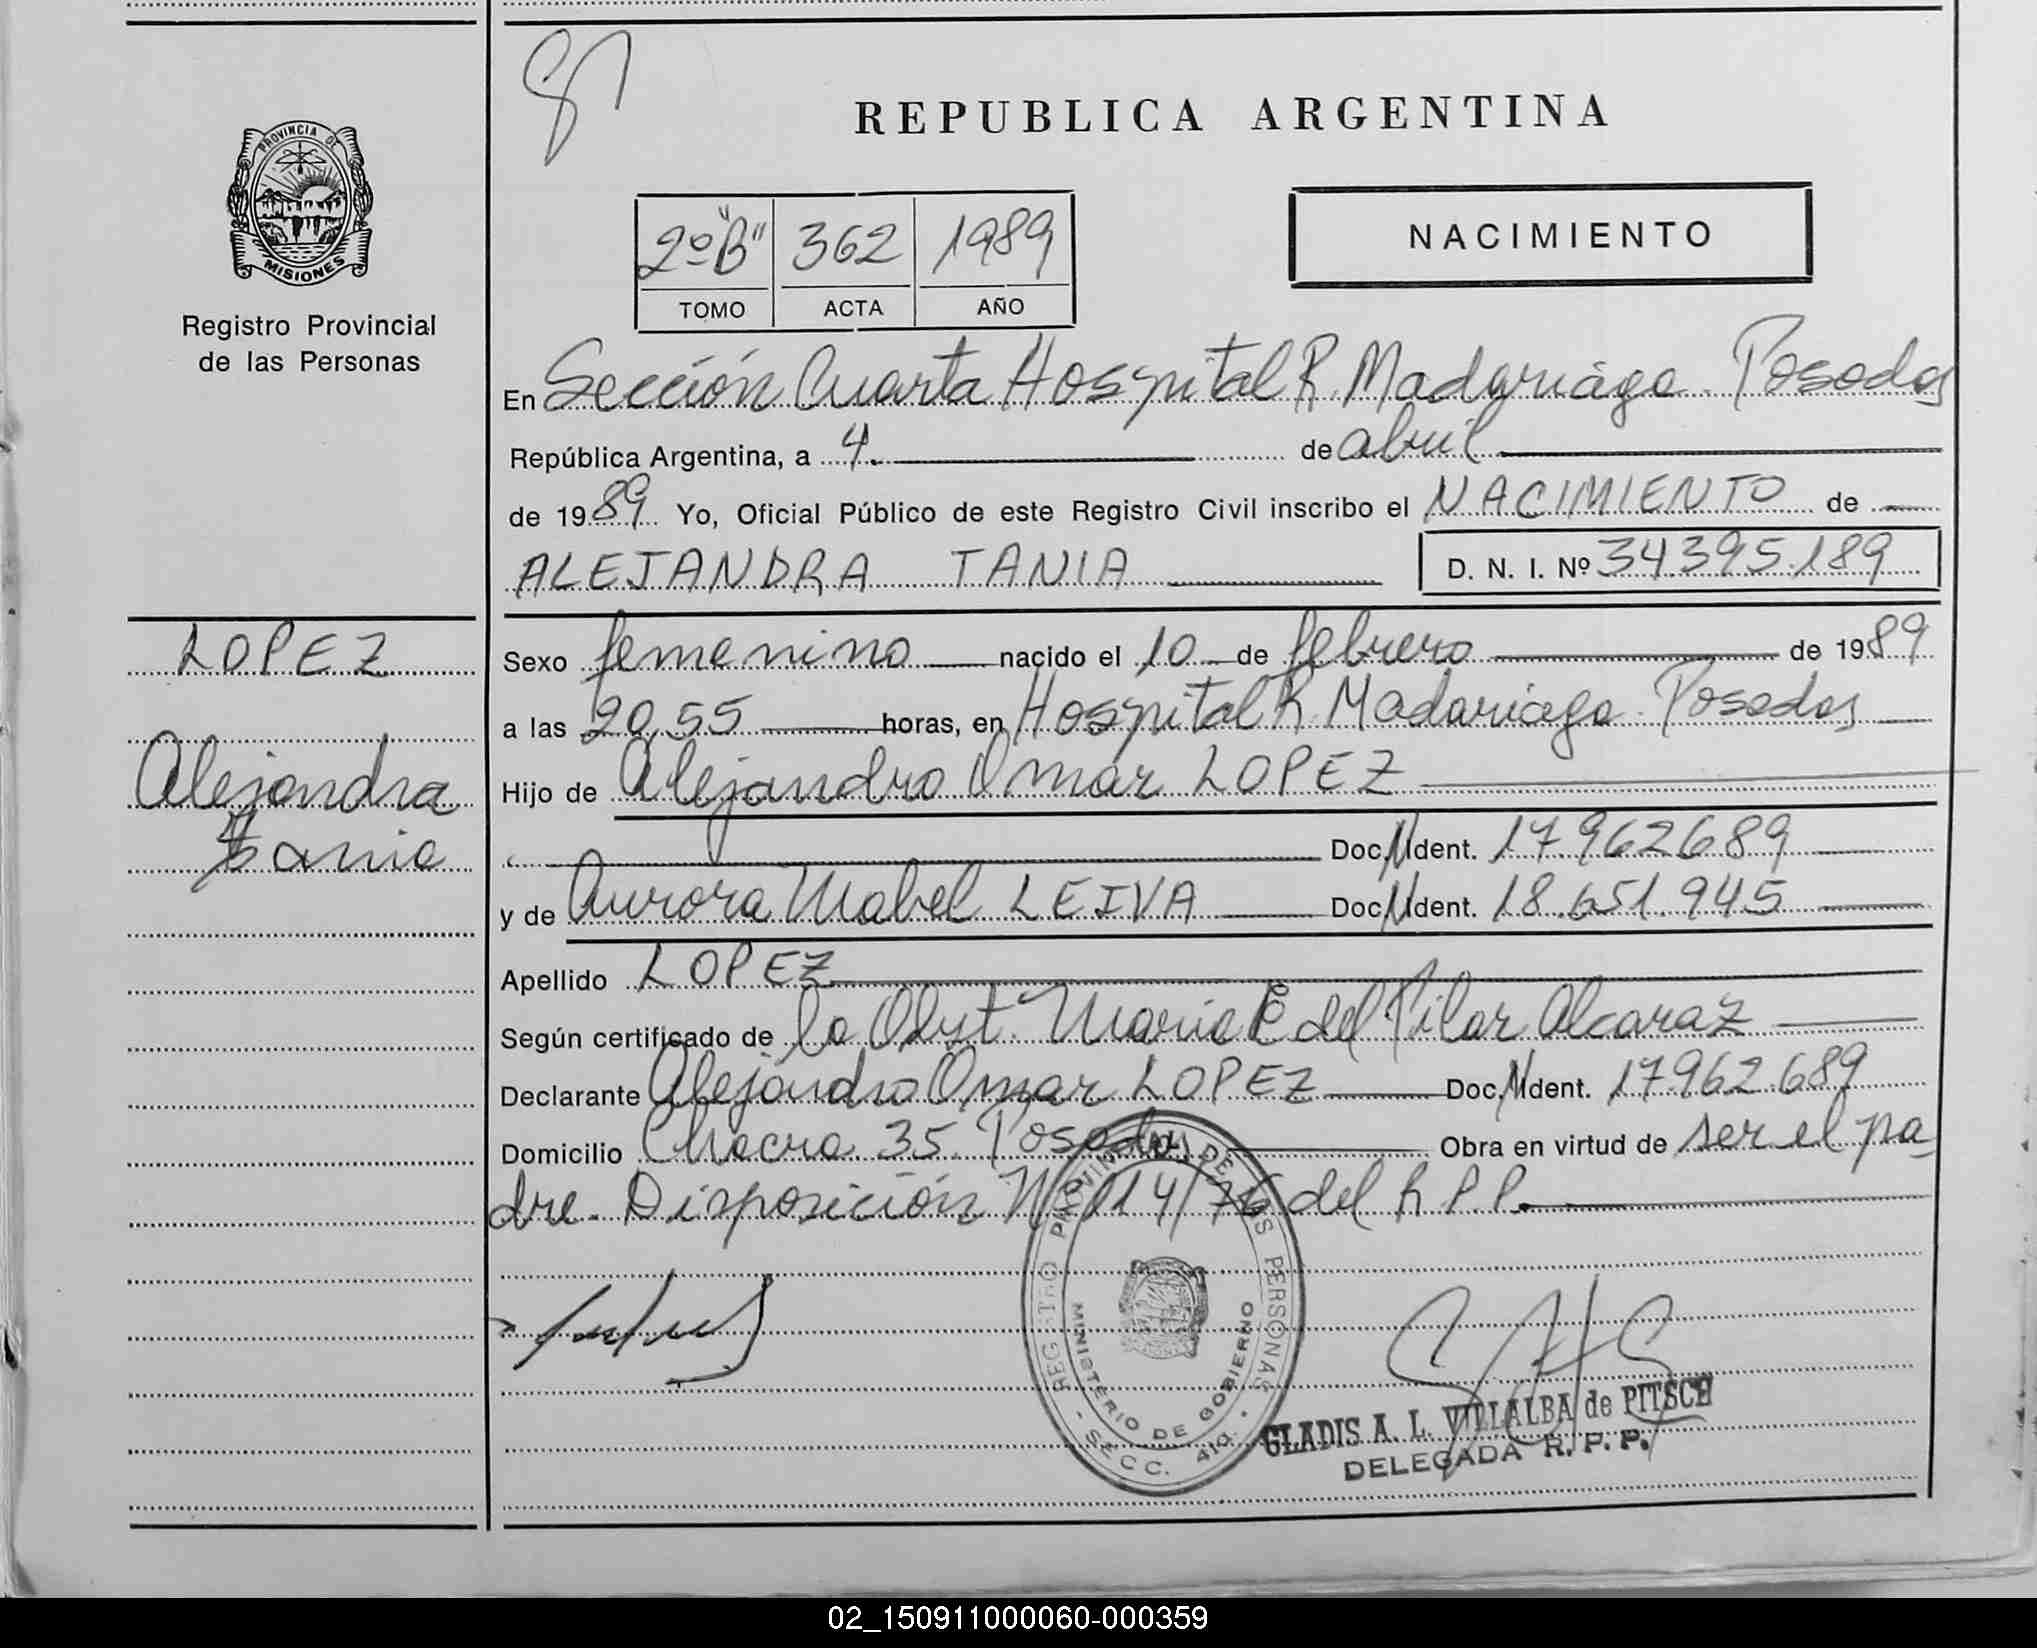 REPUBLICA ARGENTINA
PROVINCIA DE MISIONES
Registro Provincial
de las Personas
2º "B" 362 1989
TOMO ACTA AÑO
NACIMIENTO
En Sección Cuarta Hospital R. Madariaga. Posadas
República Argentina, a 4. de abril
de 1989 Yo, Oficial Público de este Registro Civil inscribo el NACIMIENTO de
ALEJANDRA TANIA D. N. I. Nº 34.395.189
LOPEZ
Alejandra
Tania
Sexo femenino nacido el 10 de febrero de 1989
a las 20,55 horas, en Hospital R. Madariaga. Posadas
Hijo de Alejandro Omar LOPEZ
Doc. Ident. 17.962689
y de Aurora Mabel LEIVA Doc. Ident. 18.651.945
Apellido LOPEZ
Según certificado de la Obst. Maria E del Pilar Alcaraz
Declarante Alejandro Omar LOPEZ Doc. Ident. 17962.689
Domicilio Chacra 35. Posadas Obra en virtud de ser el pa
dre. Disposición Nº 014/76 del R.P.P.
REGISTRO PROVINCIAL DE LAS PERSONAS
MINISTERIO DE GOBIERNO
- SECC. 4ta. -
GLADIS A. L. VILLALBA de PITSCH
DELEGADA R. P. P.
02_150911000060-000359